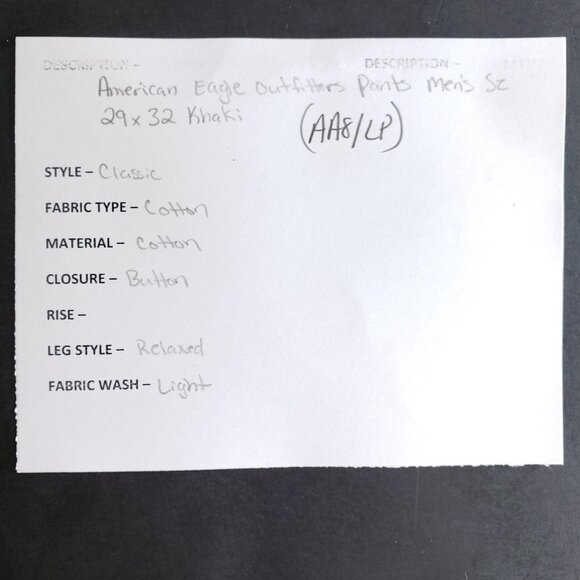 DESCRIPTION – DESCRIPTION –
American Eagle Outfitters Pants Men's Sz
29x32 Khaki (AA8/LP)
STYLE – Classic
FABRIC TYPE – Cotton
MATERIAL – Cotton
CLOSURE – Button
RISE –
LEG STYLE – Relaxed
FABRIC WASH – Light